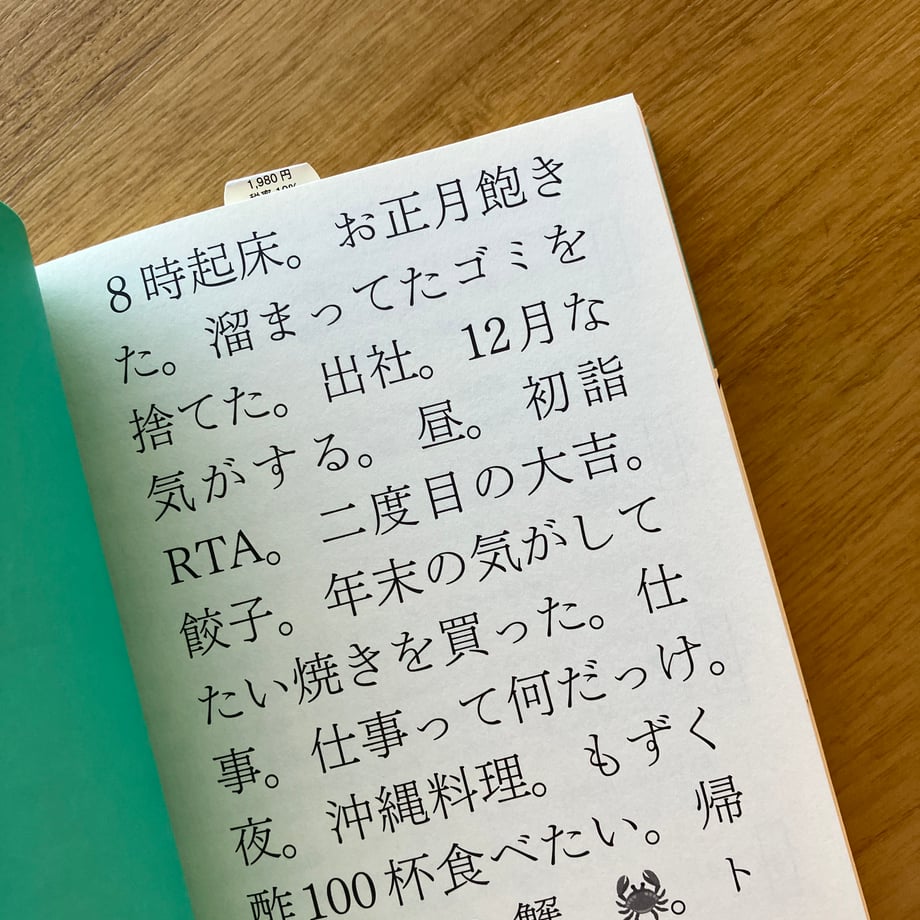 1,980円
8時起床。お正月飽き
た。溜まってたゴミを
捨てた。出社。12月な
気がする。昼。初詣
RTA。二度目の大吉。
餃子。年末の気がして
たい焼きを買った。仕
事。仕事って何だっけ。
夜。沖縄料理。もずく
酢100杯食べたい。帰
蟹🦀。ト